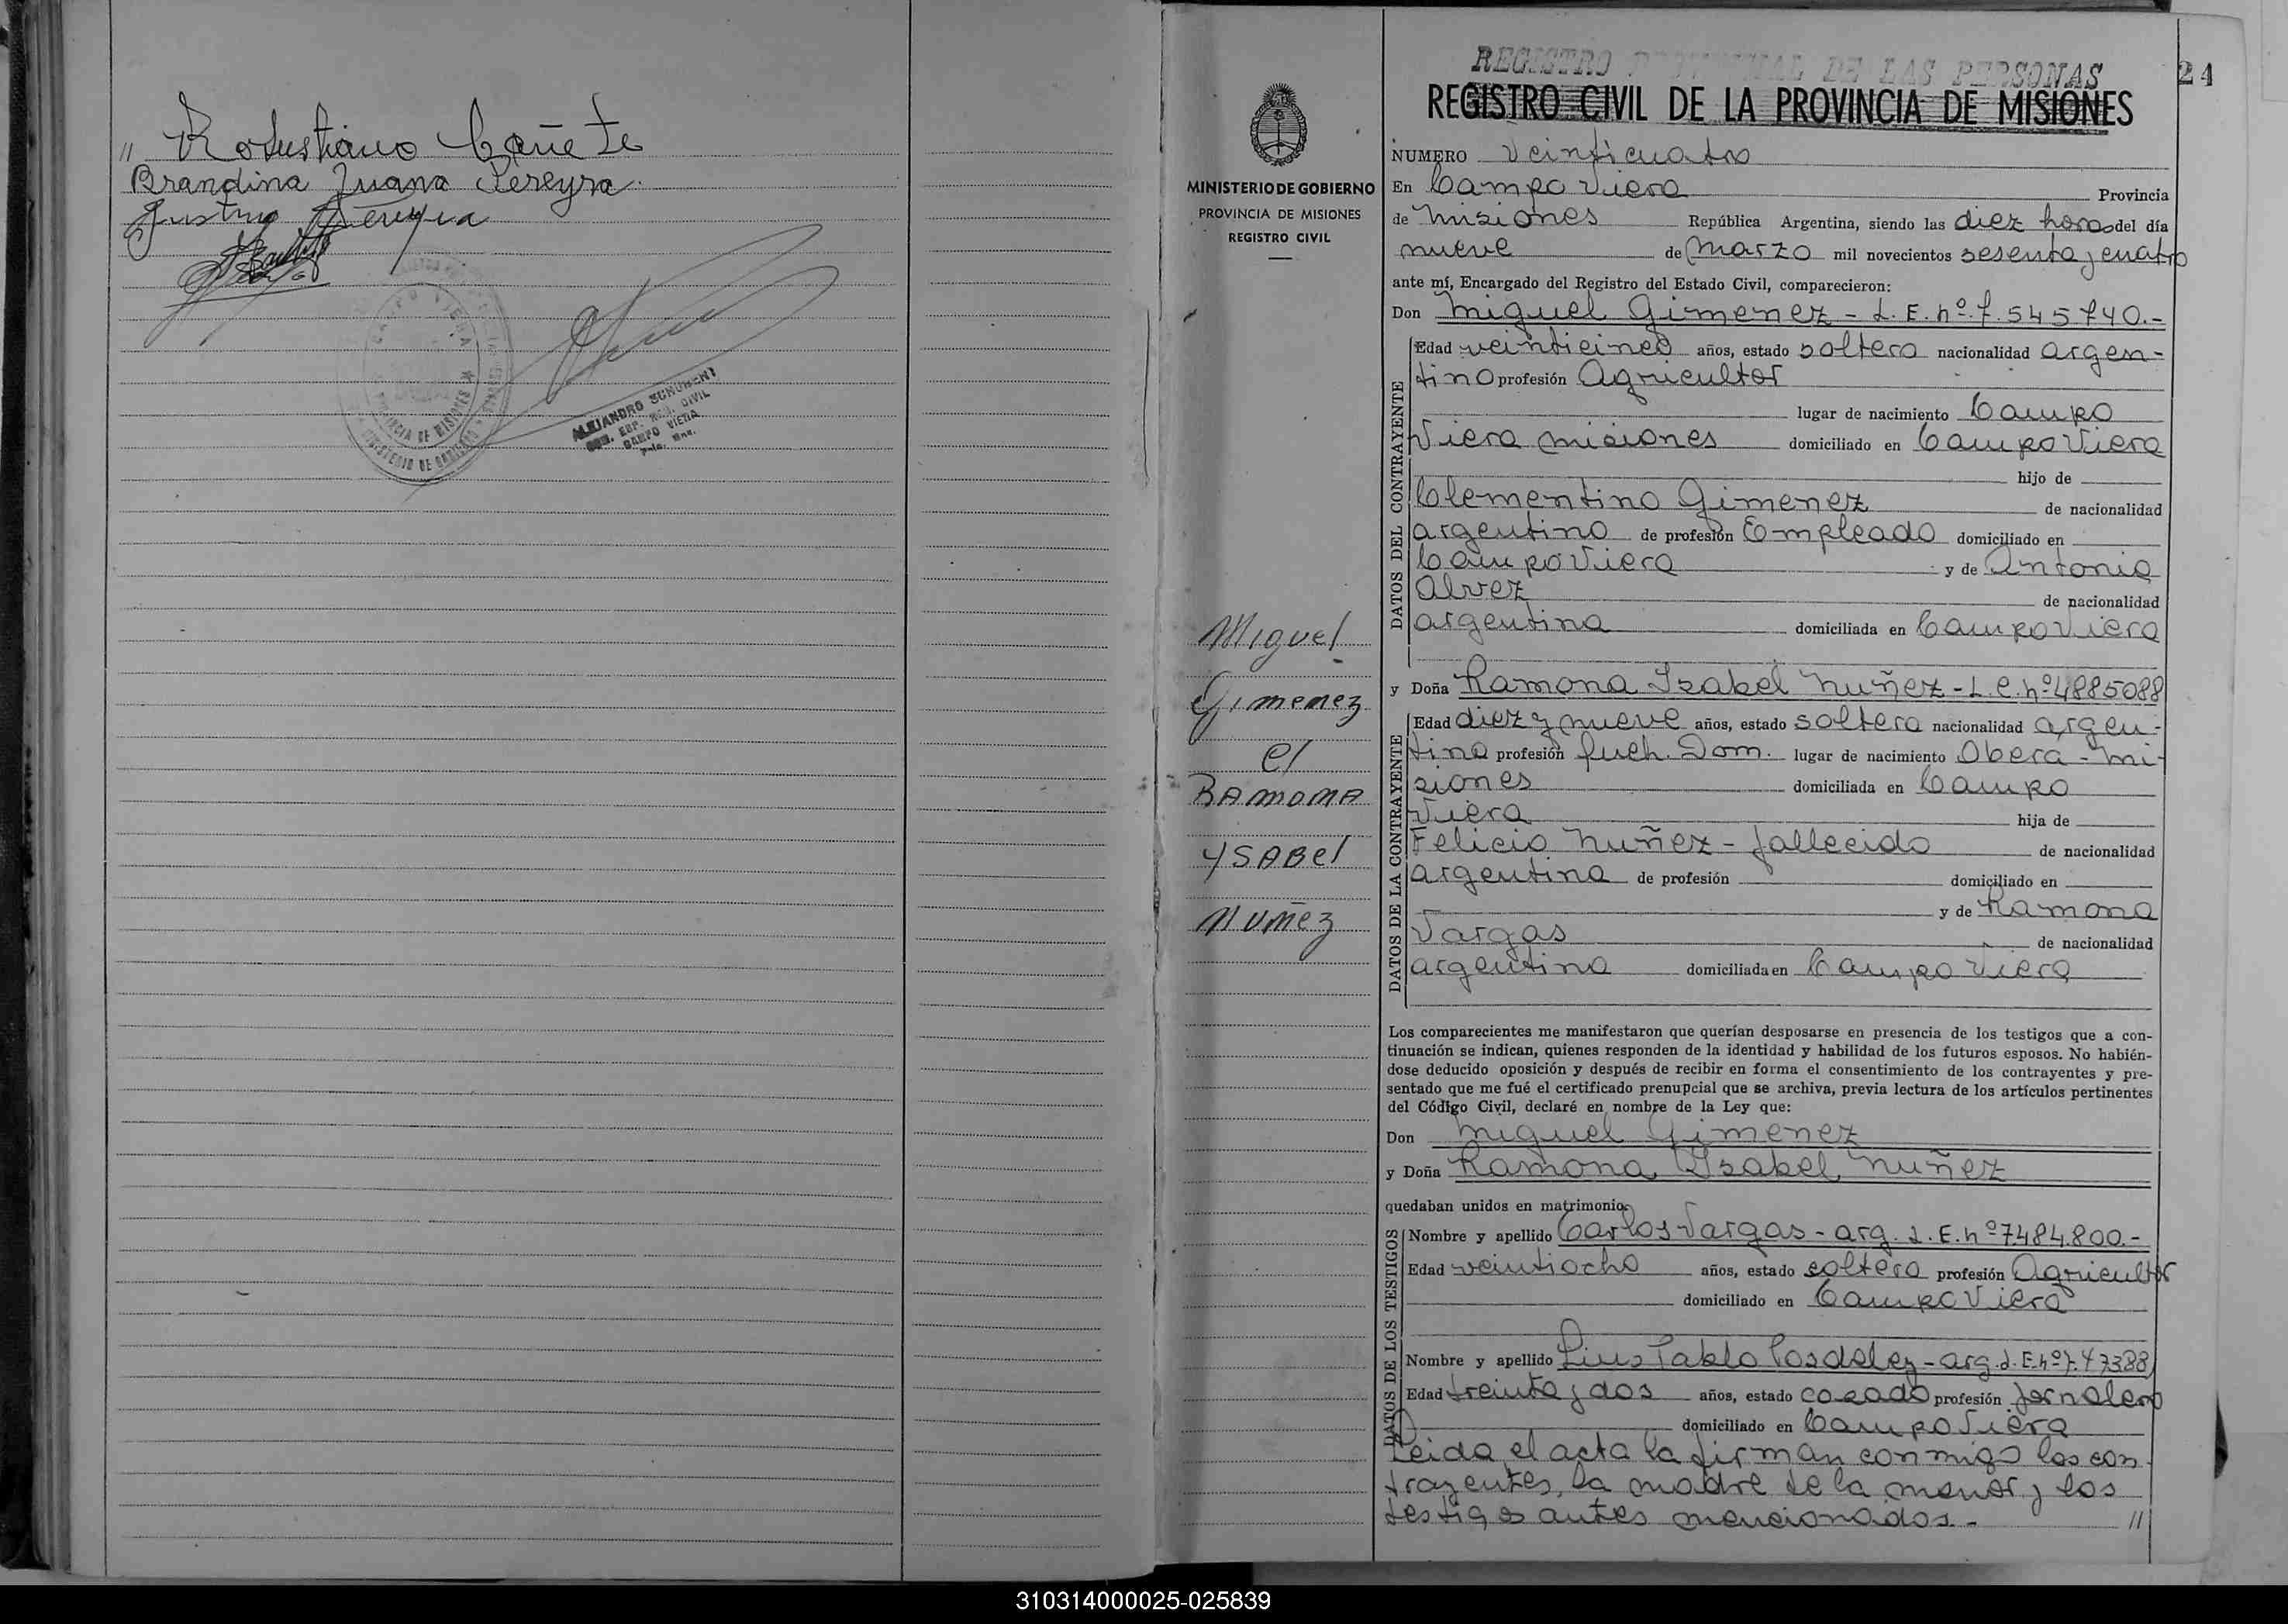 " Robustiano Cañete
Brandina Juana Pereyra.
Justino Pereyra
CAMPO VIERA
PROVINCIA DE MISIONES
MINISTERIO DE GOBIERNO
ALEJANDRO SCHUBERT
CAMPO VIERA
REGISTRO PROVINCIAL DE LAS PERSONAS
24
REGISTRO CIVIL DE LA PROVINCIA DE MISIONES
MINISTERIO DE GOBIERNO
PROVINCIA DE MISIONES
REGISTRO CIVIL
Miguel
Gimenez
el
RAMONA
YSABEl
Nuñez
NUMERO Veinticuatro
En Campo Viera Provincia
de Misiones República Argentina, siendo las diez horas del día
nueve de marzo mil novecientos sesenta y cuatro
ante mí, Encargado del Registro del Estado Civil, comparecieron:
Don Miguel Gimenez - L. E. nº. 7.545740.-
DATOS DEL CONTRAYENTE
Edad veinticinco años, estado soltero nacionalidad argen-
tino profesión Agricultor
lugar de nacimiento Campo
Viera Misiones domiciliado en Campo Viera
hijo de
Clementino Gimenez de nacionalidad
argentino de profesión Empleado domiciliado en
Campo Viera y de Antonia
Alvez de nacionalidad
argentina domiciliada en Campo Viera
y Doña Ramona Isabel Nuñez - L.C. nº 4885088
DATOS DE LA CONTRAYENTE
Edad diez y nueve años, estado soltera nacionalidad argen-
tina profesión Dom. lugar de nacimiento Obera - Mi-
siones domiciliada en Campo
Viera hija de
Felicio Nuñez - fallecido de nacionalidad
argentina de profesión domiciliado en
y de Ramona
Vargas de nacionalidad
argentina domiciliada en Campo Viera
Los comparecientes me manifestaron que querían desposarse en presencia de los testigos que a con-
tinuación se indican, quienes responden de la identidad y habilidad de los futuros esposos. No habién-
dose deducido oposición y después de recibir en forma el consentimiento de los contrayentes y pre-
sentado que me fué el certificado prenupcial que se archiva, previa lectura de los artículos pertinentes
del Código Civil, declaré en nombre de la Ley que:
Don Miguel Gimenez
y Doña Ramona Isabel Nuñez
quedaban unidos en matrimonio
DATOS DE LOS TESTIGOS
Nombre y apellido Carlos Vargas - arg. L. E. nº 7.484.800.-
Edad veintiocho años, estado soltero profesión Agricultor
domiciliado en Campo Viera
Nombre y apellido Pablo - arg. L. E. nº
Edad treinta y dos años, estado casado profesión Jornalero
domiciliado en Campo Viera
Leida el acta la firman conmigo los con-
trayentes, la madre de la menor y los
testigos antes mencionados.- //
310314000025-025839